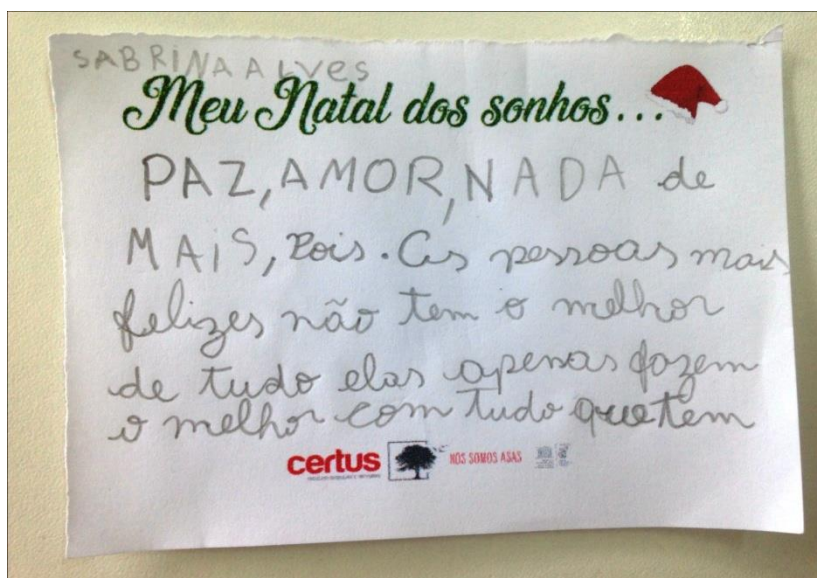 SABRINA ALVES
Meu Natal dos sonhos...
PAZ, AMOR, NADA de
MAIS, Pois. As pessoas mais
felizes não tem o melhor
de tudo elas apenas fazem
o melhor com tudo que tem
certus
NÓS SOMOS ASAS